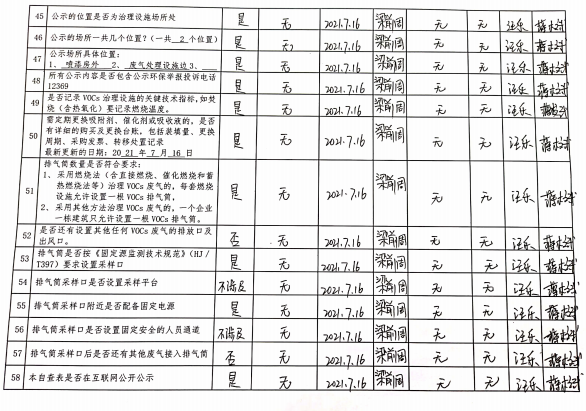 45 公示的位置是否为治理设施场所处 是 无 2021.7.16 无 无 汪乐
46 公示的场所一共几个位置?(一共 2 个位置) 是 无 2021.7.16 无 无 汪乐
47 公示场所具体位置:
1、喷漆房外 2、废气处理设施边 3、 是 无 2021.7.16 无 无 汪乐
48 所有公示内容是否包含公示环保举报投诉电话
12369 是 无 2021.7.16 无 无 汪乐
49 是否记录 VOCs 治理设施的关键技术指标,如焚
烧(含热氧化)要记录燃烧温度。 是 无 2021.7.16 无 无 汪乐
50 需定期更换吸附剂、催化剂或吸收液的,是否
有详细的购买及更换台账。包括装填量、更换
周期、采购发票、转移处置记录
最新更新的日期:2021 年 7 月 16 日 是 无 2021.7.16 无 无 汪乐
51 排气筒数量是否符合要求:
1、采用燃烧法(含直接燃烧、催化燃烧和蓄
热燃烧法等)治理 VOCs 废气的,每套燃烧
设施允许设置一根 VOCs 排气筒。
2、采用其他方法治理 VOCs 废气的,一个企业
一栋建筑只允许设置一根 VOCs 排气筒。 是 无 2021.7.16 无 无 汪乐
52 是否还有设置其他任何 VOCs 废气的排放口及
出风口。 否 无 2021.7.16 无 无 汪乐
53 排气筒是否按《固定源监测技术规范》(HJ/
T397)要求设置采样口 是 无 2021.7.16 无 无 汪乐
54 排气筒采样口是否设置采样平台 不涉及 无 2021.7.16 无 无 汪乐
55 排气筒采样口附近是否配备固定电源 是 无 2021.7.16 无 无 汪乐
56 排气筒采样口是否设置固定安全的人员通道 不涉及 无 2021.7.16 无 无 汪乐
57 排气筒采样口后是否还有其他废气接入排气筒 否 无 2021.7.16 无 无 汪乐
58 本自查表是否在互联网公开公示 是 无 2021.7.16 无 无 汪乐